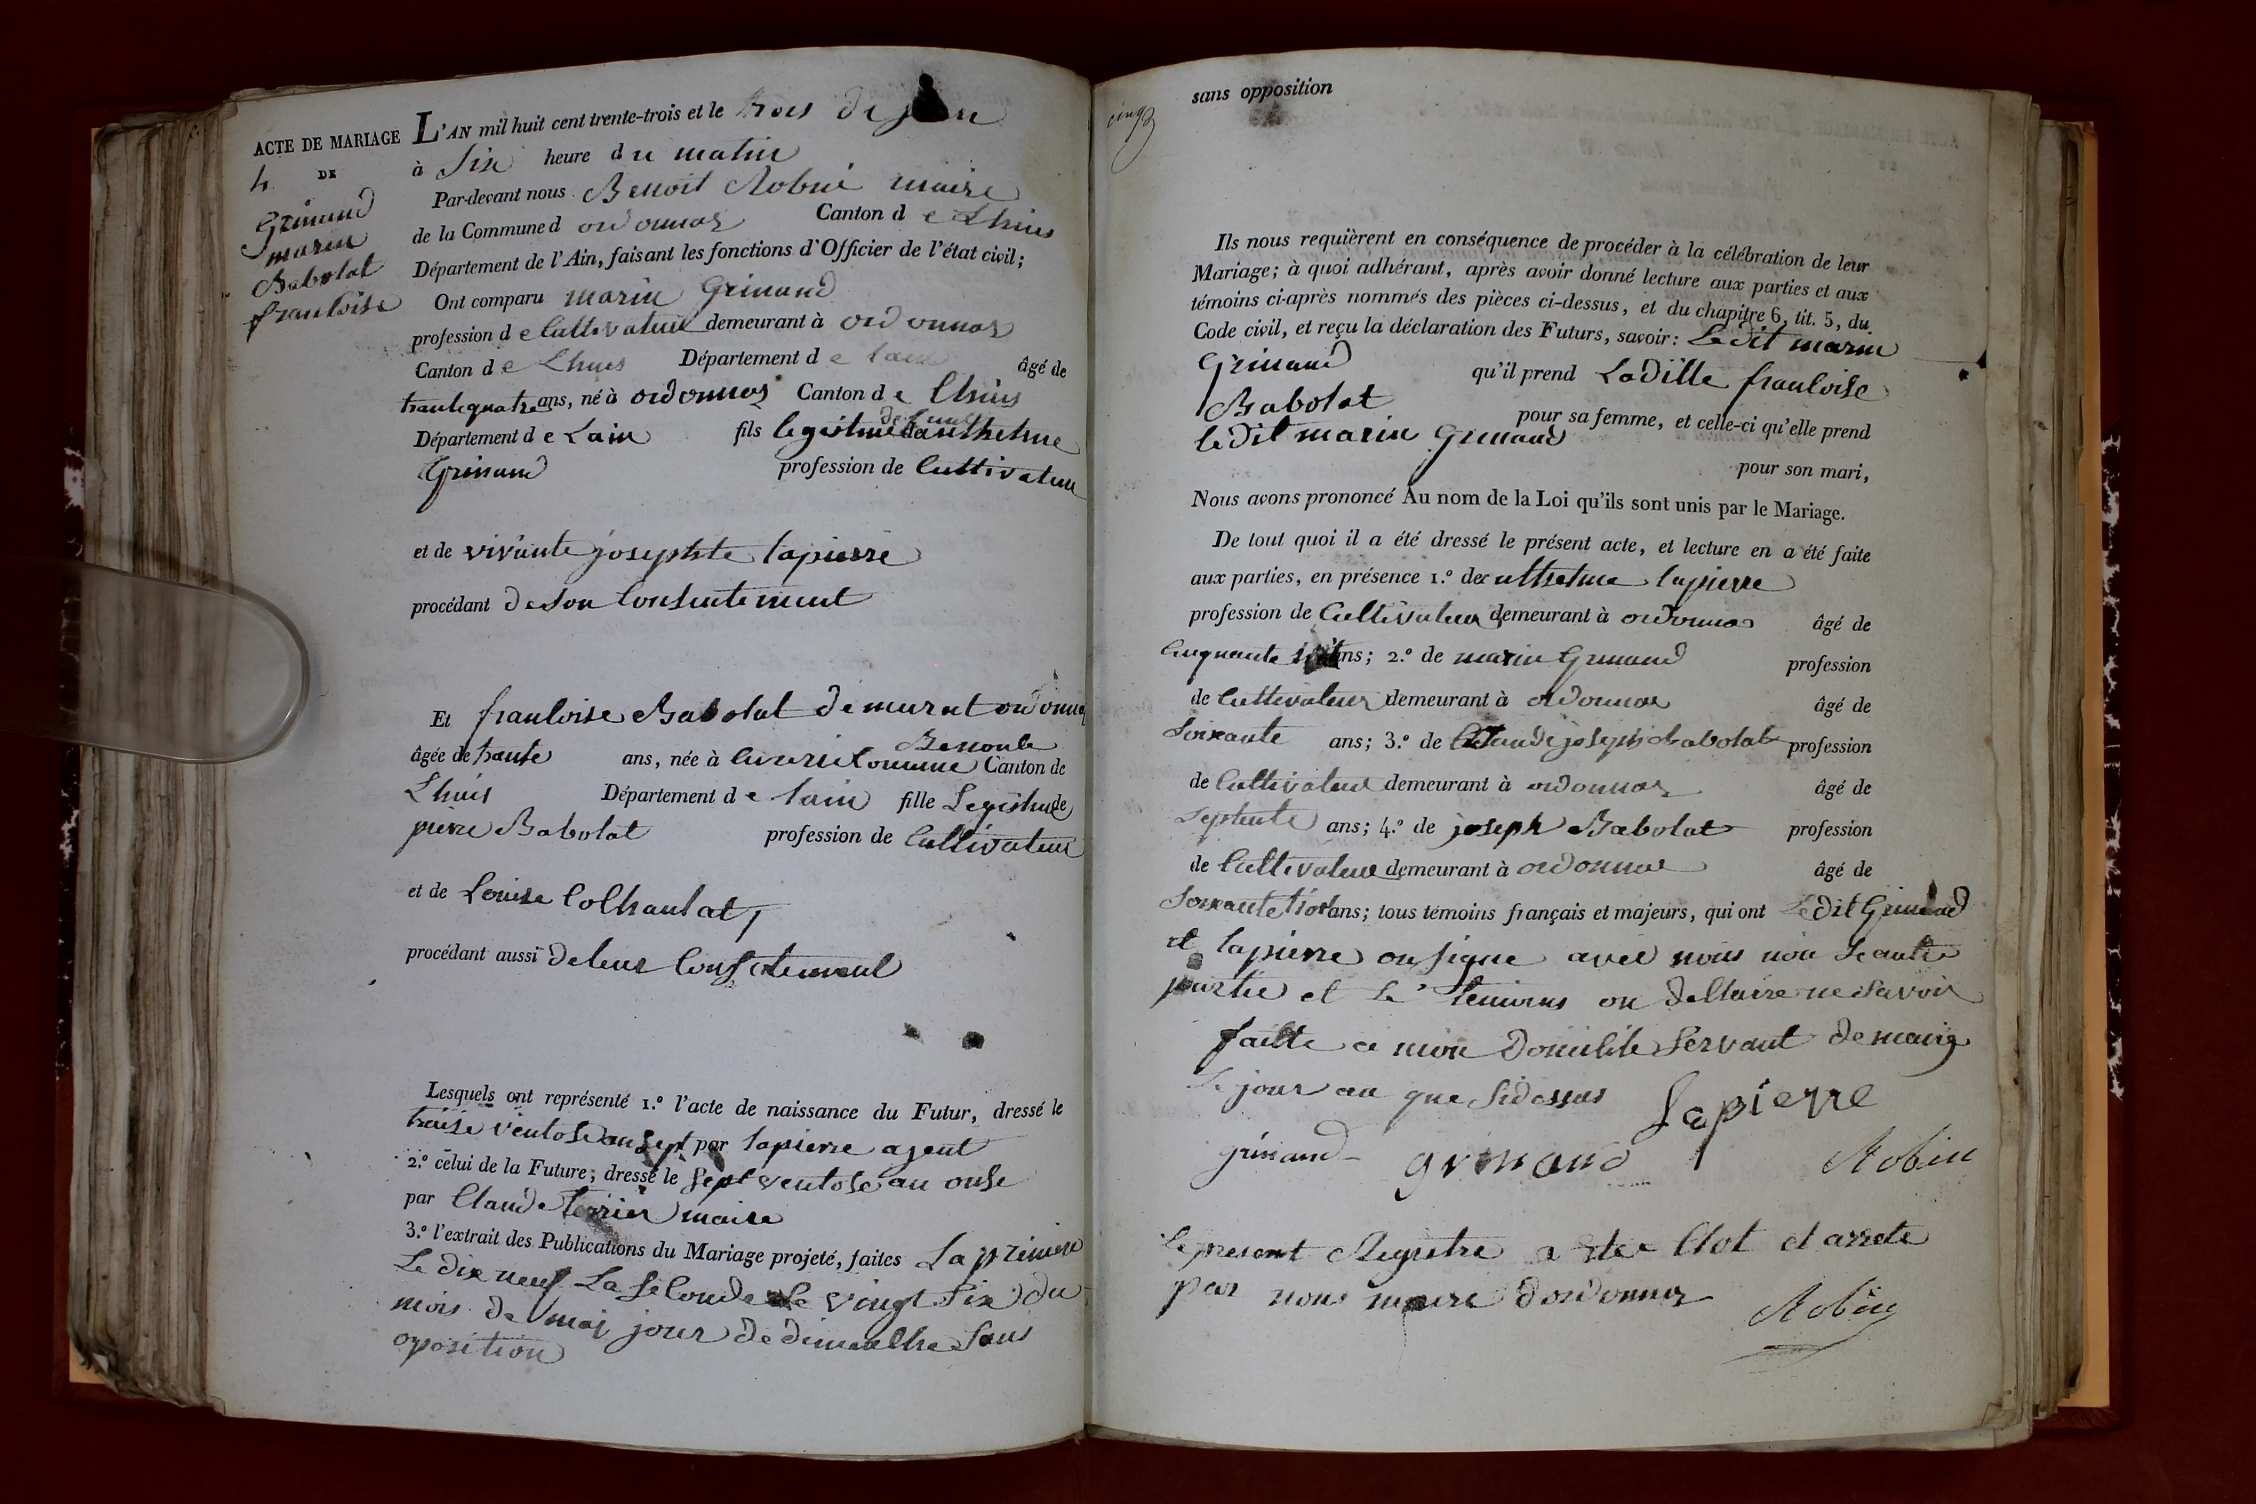 ACTE DE MARIAGE
4. DE
Grinand
marin
Babolat
franloise
L'AN mil huit cent trente-trois et le trois de juin
à Six heure du matin
Par-devant nous Benoit Robin maire
de la Commune d ordonnas Canton d e Lhuis
Département de l'Ain, faisant les fonctions d'Officier de l'état civil;
Ont comparu marin Grinand
profession d e Cultivateur demeurant à ordonnas
Canton d e Lhuis Département d e lain âgé de
trante quatre ans, né à ordonnas Canton d e Lhuis
Département d e Lain fils legistime de anthelme
Grinand profession de Cultivateur
et de vivante josephte lapierre
procédant de son Consentement
Et franloise Babolat demurat ordonnas
âgée de trante ans, née à Commune Benonle Canton de
Lhuis Département d e lain fille Legistime de
pierre Babolat profession de Cultivateur
et de Louise Colhanlat
procédant aussi de leur Consetement
Lesquels ont représenté 1.º l'acte de naissance du Futur, dressé le
traise ventose an sept par lapierre agent
2.º celui de la Future, dressé le sept ventose an onse
par Claude terrier maire
3.º l'extrait des Publications du Mariage projeté, faites La primere
Le dix neuf La seConde Le vingt six du
mois de mai jour de dimanlhe sans
oposition
cinq
sans opposition
Ils nous requièrent en conséquence de procéder à la célébration de leur
Mariage; à quoi adhérant, après avoir donné lecture aux parties et aux
témoins ci-après nommés des pièces ci-dessus, et du chapitre 6, tit. 5, du
Code civil, et reçu la déclaration des Futurs, savoir: Le dit marin
Grinand qu'il prend Ladille franloise
Babolat pour sa femme, et celle-ci qu'elle prend
le dit marin Grinand
pour son mari,
Nous avons prononcé Au nom de la Loi qu'ils sont unis par le Mariage.
De tout quoi il a été dressé le présent acte, et lecture en a été faite
aux parties, en présence 1.º de anthelme lapierre
profession de Cultivateur demeurant à ordonnas âgé de
Cinquante ans; 2.º de marin Grinand profession
de Cultivateur demeurant à ordonnas âgé de
Soixante ans; 3.º de Claude joseph babolat profession
de Cultivateur demeurant à ordonnas âgé de
septente ans; 4.º de joseph Babolat profession
de Cultivateur demeurant à ordonnas âgé de
Soixante trois ans; tous témoins français et majeurs, qui ont Le dit Grinand
et lapierre on signe avec nous non Le autre
partie et Le temoins on dellaire ne savoir
faitte a mon domilile servant de mairie
Le jour an que sidessus
Lapierre
grinand
grinand
Robin
Le present Registre a ete Clot et arrete
par nous maire dordonnas
Robin